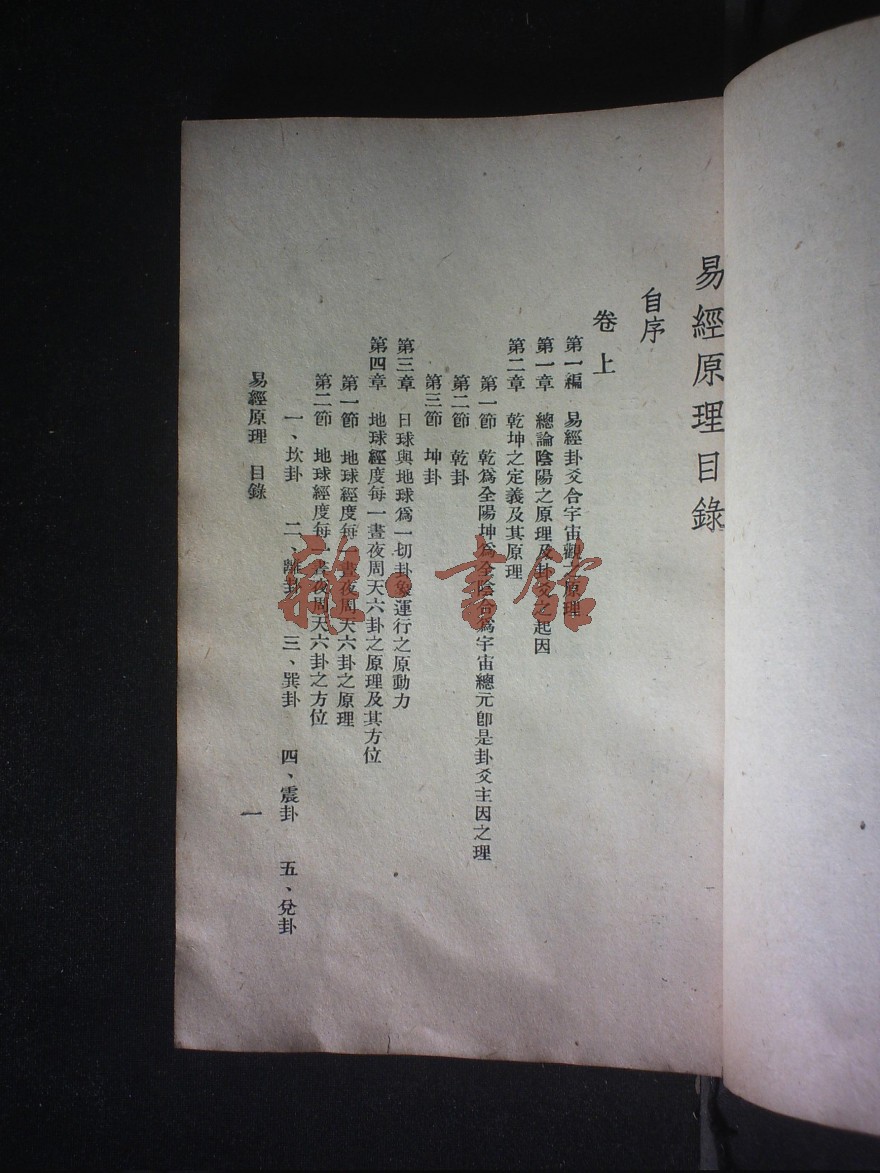 易經原理目錄
自序
卷上
第一編 易經卦爻合宇宙觀之原理
第一章 總論陰陽之原理及卦爻之起因
第二章 乾坤之定義及其原理
第一節 乾爲全陽坤爲全陰合爲宇宙總元卽是卦爻主因之理
第二節 乾卦
第三節 坤卦
第三章 日球與地球爲一切卦象運行之原動力
第四章 地球經度每一晝夜周天六卦之原理及其方位
第一節 地球經度每一晝夜周天六卦之原理
第二節 地球經度每一晝夜周天六卦之方位
一、坎卦 二、離卦 三、巽卦 四、震卦 五、兌卦
易經原理 目錄
一
雜·書館